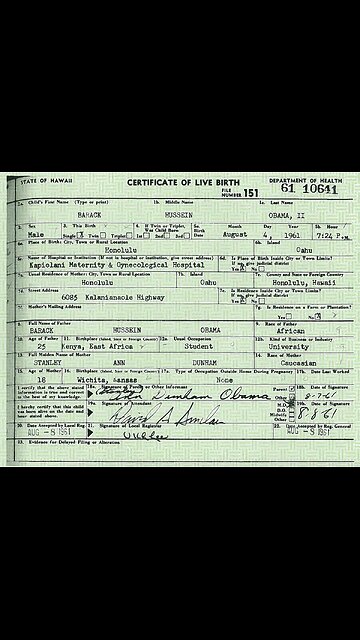 STATE OF HAWAII CERTIFICATE OF LIVE BIRTH DEPARTMENT OF HEALTH
FILE NUMBER 151 61 10641
1a. Child's First Name (Type or print) 1b. Middle Name 1c. Last Name
BARACK HUSSEIN OBAMA, II
2. Sex 3. This Birth 4. If Twin or Triplet, Was Child Born 5a. Birth Date Month Day Year 5b. Hour
Male Single X Twin Triplet 1st 2nd 3rd August 4, 1961 7:24 P.M.
6a. Place of Birth: City, Town or Rural Location 6b. Island
Honolulu Oahu
6c. Name of Hospital or Institution (If not in hospital or institution, give street address) 6d. Is Place of Birth Inside City or Town Limits? If no, give judicial district
Kapiolani Maternity & Gynecological Hospital Yes X No
7a. Usual Residence of Mother: City, Town or Rural Location 7b. Island 7c. County and State or Foreign Country
Honolulu Oahu Honolulu, Hawaii
7d. Street Address 7e. Is Residence Inside City or Town Limits? If no, give judicial district
6085 Kalanianaole Highway Yes X No
7f. Mother's Mailing Address 7g. Is Residence on a Farm or Plantation?
Yes No X
8. Full Name of Father 9. Race of Father
BARACK HUSSEIN OBAMA African
10. Age of Father 11. Birthplace (Island, State or Foreign Country) 12a. Usual Occupation 12b. Kind of Business or Industry
25 Kenya, East Africa Student University
13. Full Maiden Name of Mother 14. Race of Mother
STANLEY ANN DUNHAM Caucasian
15. Age of Mother 16. Birthplace (Island, State or Foreign Country) 17a. Type of Occupation Outside Home During Pregnancy 17b. Date Last Worked
18 Wichita, Kansas None
I certify that the above stated information is true and correct to the best of my knowledge. 18a. Signature of Parent or Other Informant Parent Other 18b. Date of Signature
Dunham Obama 8-7-61
I hereby certify that this child was born alive on the date and hour stated above. 19a. Signature of Attendant M.D. D.O. Midwife Other 19b. Date of Signature
8-8-61
20. Date Accepted by Local Reg. 21. Signature of Local Registrar 22. Date Accepted by Reg. General
AUG -8 1961 AUG -8 1961
23. Evidence for Delayed Filing or Alteration